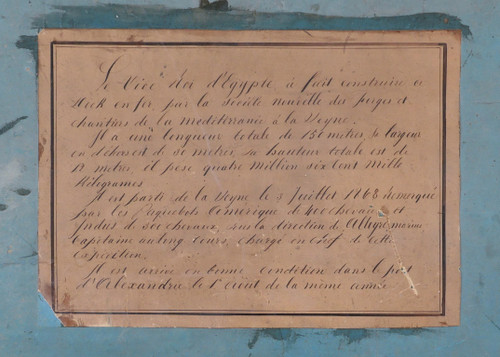 Le Vice Roi d'Egypte à fait construire ce
Dock en fer, par la société nouvelle des forges et
chantiers de la mediterranée à la Seyne.
Il a une longueur totale de 136 metres, sa largeur
en dehors est de 30 metres, sa hauteur totale est de
12 metres, il pese quatre million six cent mille
Kilogrames
Il est parti de la Seyne le 5 Juillet 1868 remorqué
par les Paquebots Amerique de 400 chevaux et
Indus de 500 chevaux, sous la direction de
capitaine au long cours, chargé en chef de cette
expedition.
Il est arrivé en bonne condition dans le port
d'Alexandrie le 1er Août de la même année